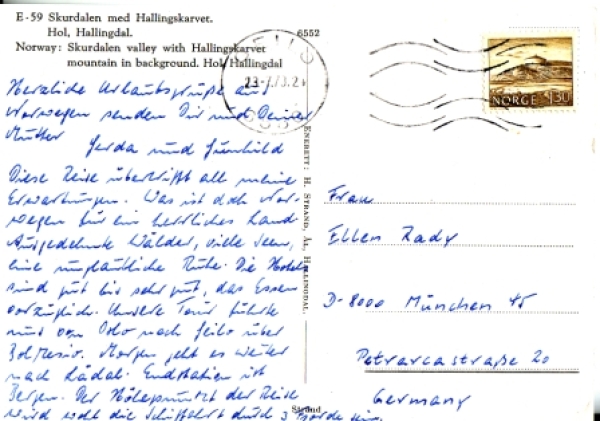 E-59 Skurdalen med Hallingskarvet.
Hol, Hallingdal.
Norway: Skurdalen valley with Hallingskarvet
mountain in background. Hol, Hallingdal
6552
NORGE 130
Herzliche Urlaubsgrüße aus
Norwegen senden Dir und Deiner
Mutter
Gerda und Gunhild
Diese Reise übertrifft all meine
Erwartungen. Was ist doch Nor-
wegen für ein herrliches Land.
Ausgedehnte Wälder, viele Seen,
eine unglaubliche Ruhe. Die Hotels
sind gut bis sehr gut, das Essen
vorzüglich. Unsere Tour führte
uns von Oslo nach Geilo über
Morgen geht es weiter
nach Lädal. Endstation ist
Bergen. Der Höhepunkt der Reise
wird wohl die Schiffahrt durch 3 Fjorde sein.
ENERETT: H. STRAND, ÅL, HALLINGDAL.
Strand
Frau
Ellen Rady
D-8000 München 45
Petrarcastraße 20
Germany